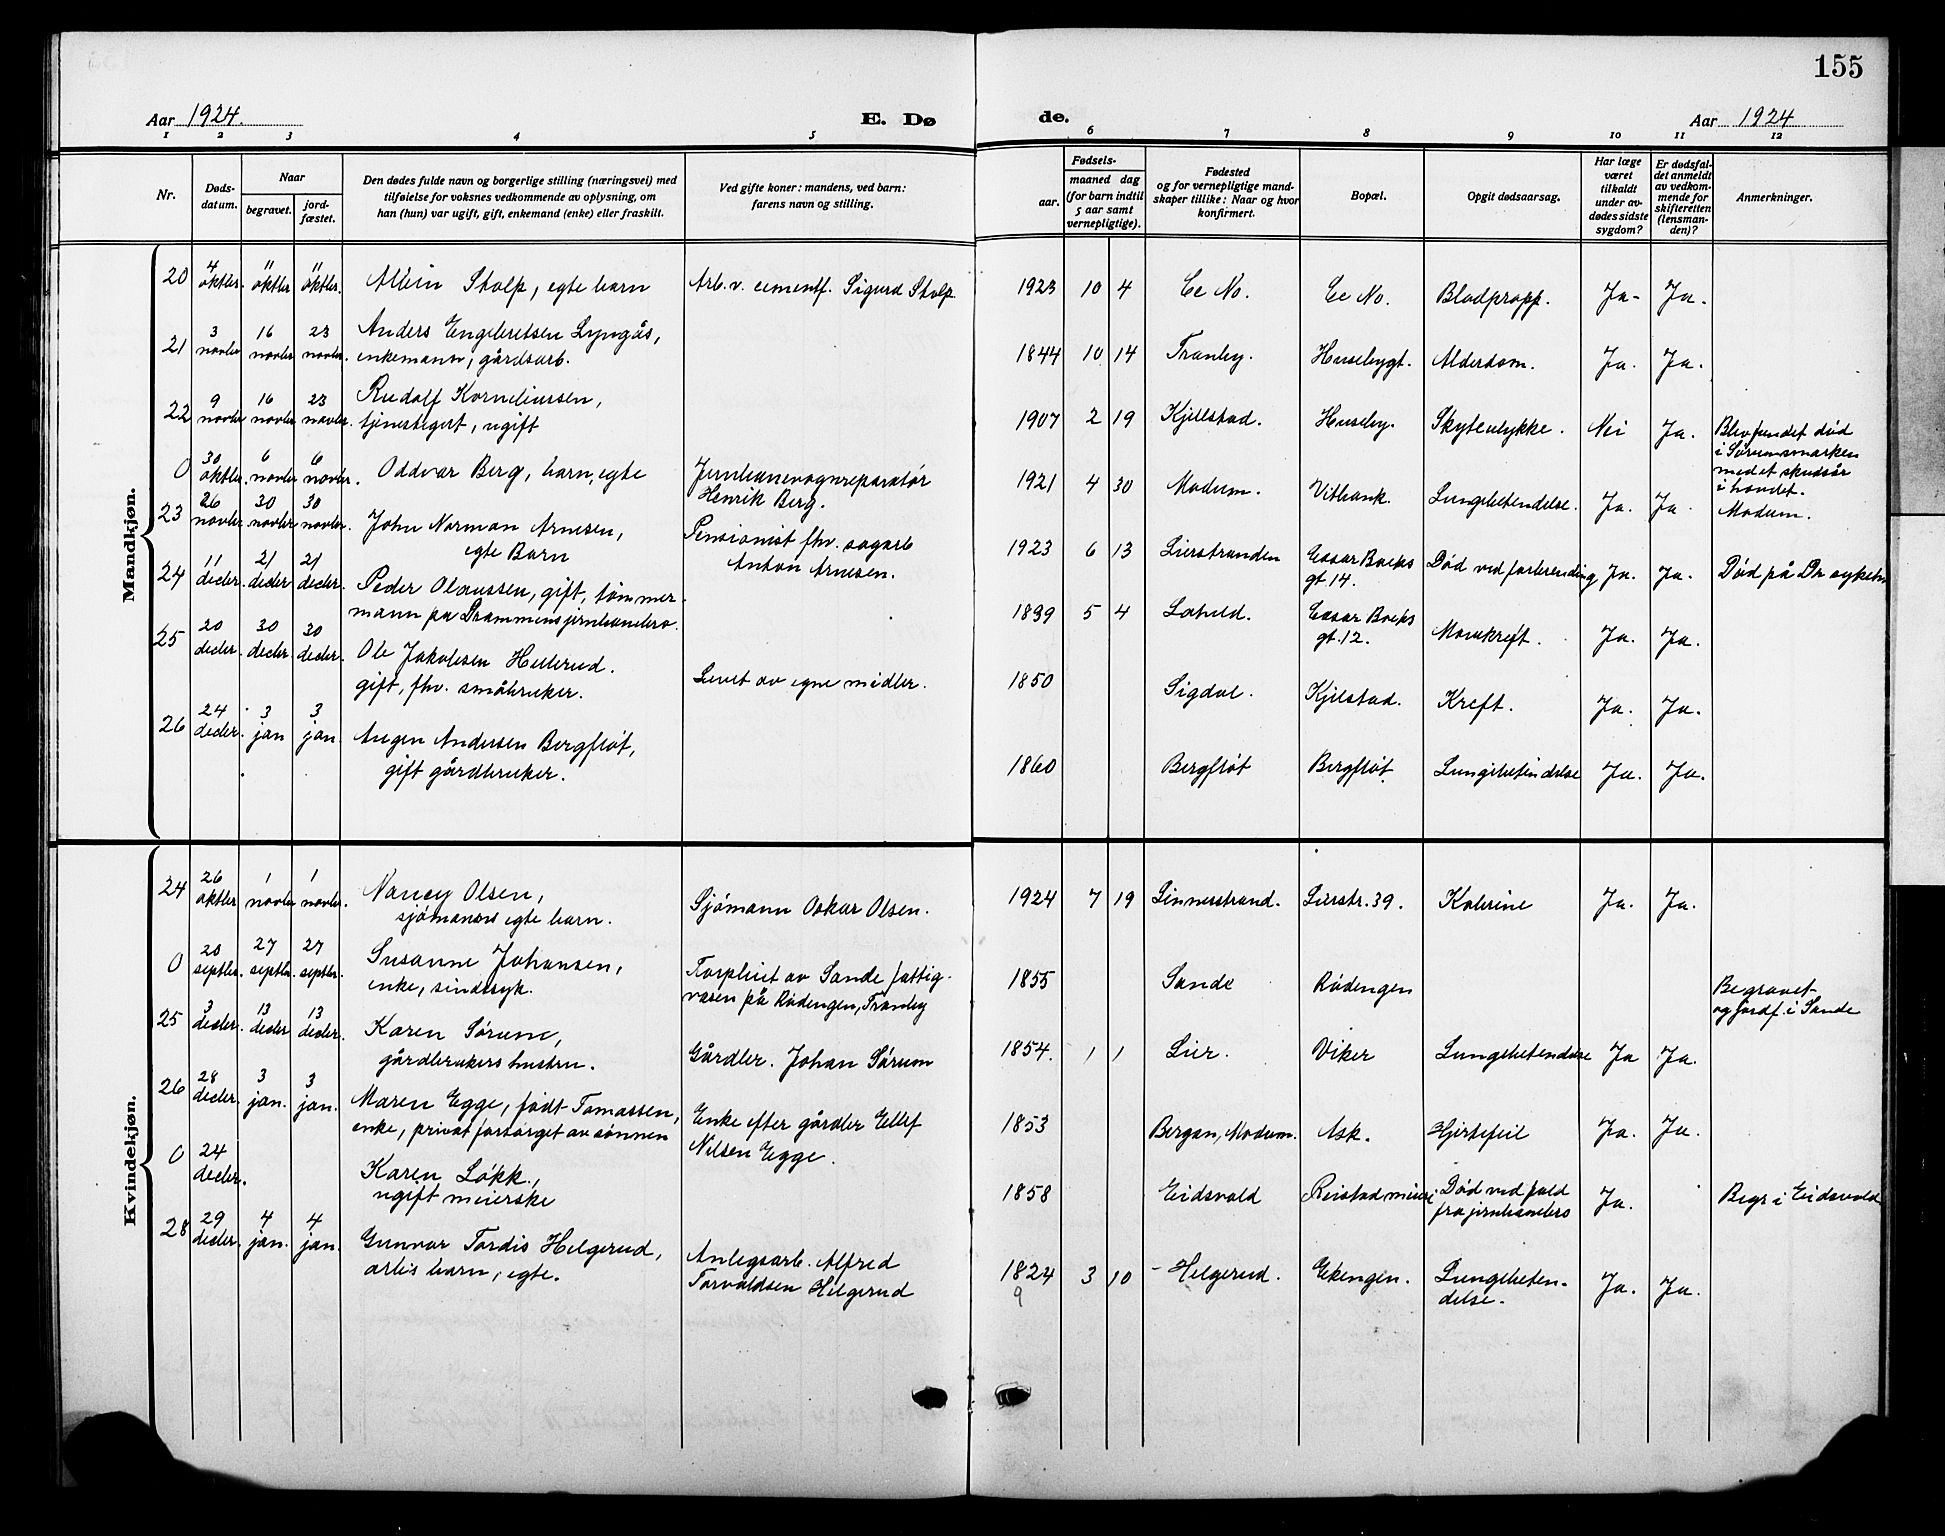 155
Aar 1924.
E. Dø
de.
Aar 1924
1 2 3 4 5 6 7 8 9 10 11 12
Nr.
Døds-
datum.
Naar
begravet.
jord-
fæstet.
Den dødes fulde navn og borgerlige stilling (næringsvei) med
tilføielse for voksnes vedkommende av oplysning, om
han (hun) var ugift, gift, enkemand (enke) eller fraskilt.
Ved gifte koner: mandens, ved barn:
farens navn og stilling.
Fødsels-
aar.
maaned dag
(for barn indtil
5 aar samt
vernepligtige).
Fødested
og for vernepligtige mand-
skaper tillike: Naar og hvor
konfirmert.
Bopæl.
Opgit dødsaarsag.
Har læge
været
tilkaldt
under av-
dødes sidste
sygdom?
Er dødsfal-
det anmeldt
av vedkom-
mende for
skifteretten
(lensman-
den)?
Anmerkninger.
Mandkjøn.
20 4 oktbr. 11 oktbr 11 oktbr. Albin Stolp, egte barn Arb. v. cementf. Sigurd Stolp 1923 10 4 Ee No. Ee No. Blodpropp. Ja- Ja.
21 3 novbr 16 novbr 23 novbr. Anders Engebretsen Lyngås,
enkemann, gårdsarb. 1844 10 14 Tranby. Husebygt. Alderdom. Ja. Ja.
22 9 novbr. 16 novbr. 23 novbr. Rudolf Korneliussen,
tjenestegut, ugift 1907 2 19 Kjellstad. Huseby. Skyteulykke. Nei Ja. Blev fundet død
i Sørumsmarken
med et skudsår
i hovdet.
0 30 oktbr. 6 novbr. 6 novbr. Oddvar Berg, barn, egte Jernbanevognreparatør
Henrik Berg. 1921 4 30 Modum. Vitbank. Lungebetendelse. Ja. Ja. Modum.
23 26 novbr. 30 novbr 30 novbr. John Norman Arnesen,
egte Barn Pensionist fhv. sagarb
Anton Arnesen. 1923 6 13 Lierstranden Cesar Boeks
gt. 14. Død ved forbrending Ja. Ja. Død på Dr sykehus
24 11 decbr. 21 decbr 21 decbr. Peder Olaussen, gift, tømmer-
mann på Drammensjernbanebro. 1899 5 4 Cesar Boeks
gt. 12. Mavekreft. Ja. Ja.
25 20 decbr. 30 decbr. 30 decbr. Ole Jakobsen Hellerud.
gift, fhv. småbruker. Levet av egne midler. 1850 Sigdal. Kjelstad. Kreft. Ja. Ja.
26 24 decbr. 3 jan 3 jan. Augen Andersen Bergfløt,
gift gårdbruker. 1860 Bergfløt Bergfløt Lungebetendelse Ja. Ja.
Kvindekjøn.
24 26 oktbr 1 novbr 1 novbr. Nancy Olsen,
sjømanns egte barn. Sjømann Oskar Olsen. 1924 7 19 Linnesstrand. Lierstr. 39. Kolerine Ja. Ja.
0 20 septbr. 27 septbr. 27 septbr. Susanne Johansen,
enke, sindssyk. Forpleiet av Sande fattig-
vesen på Rødengen, Tranby 1855 Sande Rødengen Begravet
og jordf. i Sande
25 3 decbr. 13 decbr 13 decbr. Karen Sørum,
gårdbrukers hustru. Gårdbr. Johan Sørum 1854. 1 1 Lier. Viker Lungebetendelse Ja Ja.
26 28 decbr. 3 jan. 3 jan. Maren Egge, født Tomassen,
enke, privat forsørget av sønnen Enke efter gårdbr Ellef
Nilsen Egge. 1853 Bergan, Modum. Ask. Hjertefeil Ja. Ja.
0 24 decbr. Karen Løkk.,
ugift meierske 1858 Eidsvold Reistad meieri Død ved fald
fra jernbanebro Ja. Begr i Eidsvold
28 29 decbr. 4 jan. 4 jan. Gunvor Tordis Helgerud,
arbs barn, egte. Anlegsarb. Alfred
Torvaldsen Helgerud 1824 3 10 Helgerud. Ekengen. Lungebeten-
delse. Ja. Ja.
9